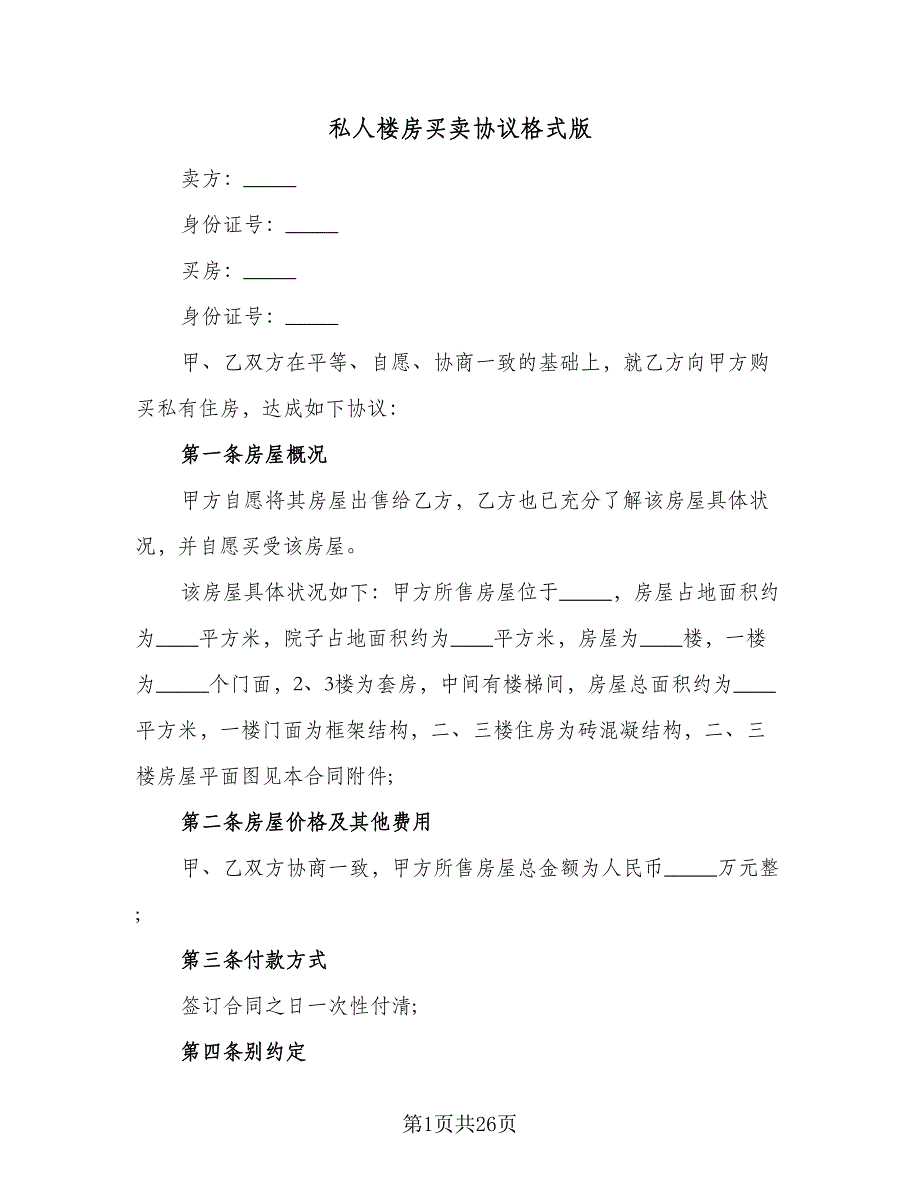 私人楼房买卖协议格式版
卖方：_____
身份证号：_____
买房：_____
身份证号：_____
甲、乙双方在平等、自愿、协商一致的基础上，就乙方向甲方购
买私有住房，达成如下协议：
第一条房屋概况
甲方自愿将其房屋出售给乙方，乙方也已充分了解该房屋具体状
况，并自愿买受该房屋。
该房屋具体状况如下：甲方所售房屋位于_____，房屋占地面积约
为____平方米，院子占地面积约为____平方米，房屋为____楼，一楼
为_____个门面，2、3楼为套房，中间有楼梯间，房屋总面积约为____
平方米，一楼门面为框架结构，二、三楼住房为砖混凝结构，二、三
楼房屋平面图见本合同附件;
第二条房屋价格及其他费用
甲、乙双方协商一致，甲方所售房屋总金额为人民币_____万元整
;
第三条付款方式
签订合同之日一次性付清;
第四条别约定
第1页共26页